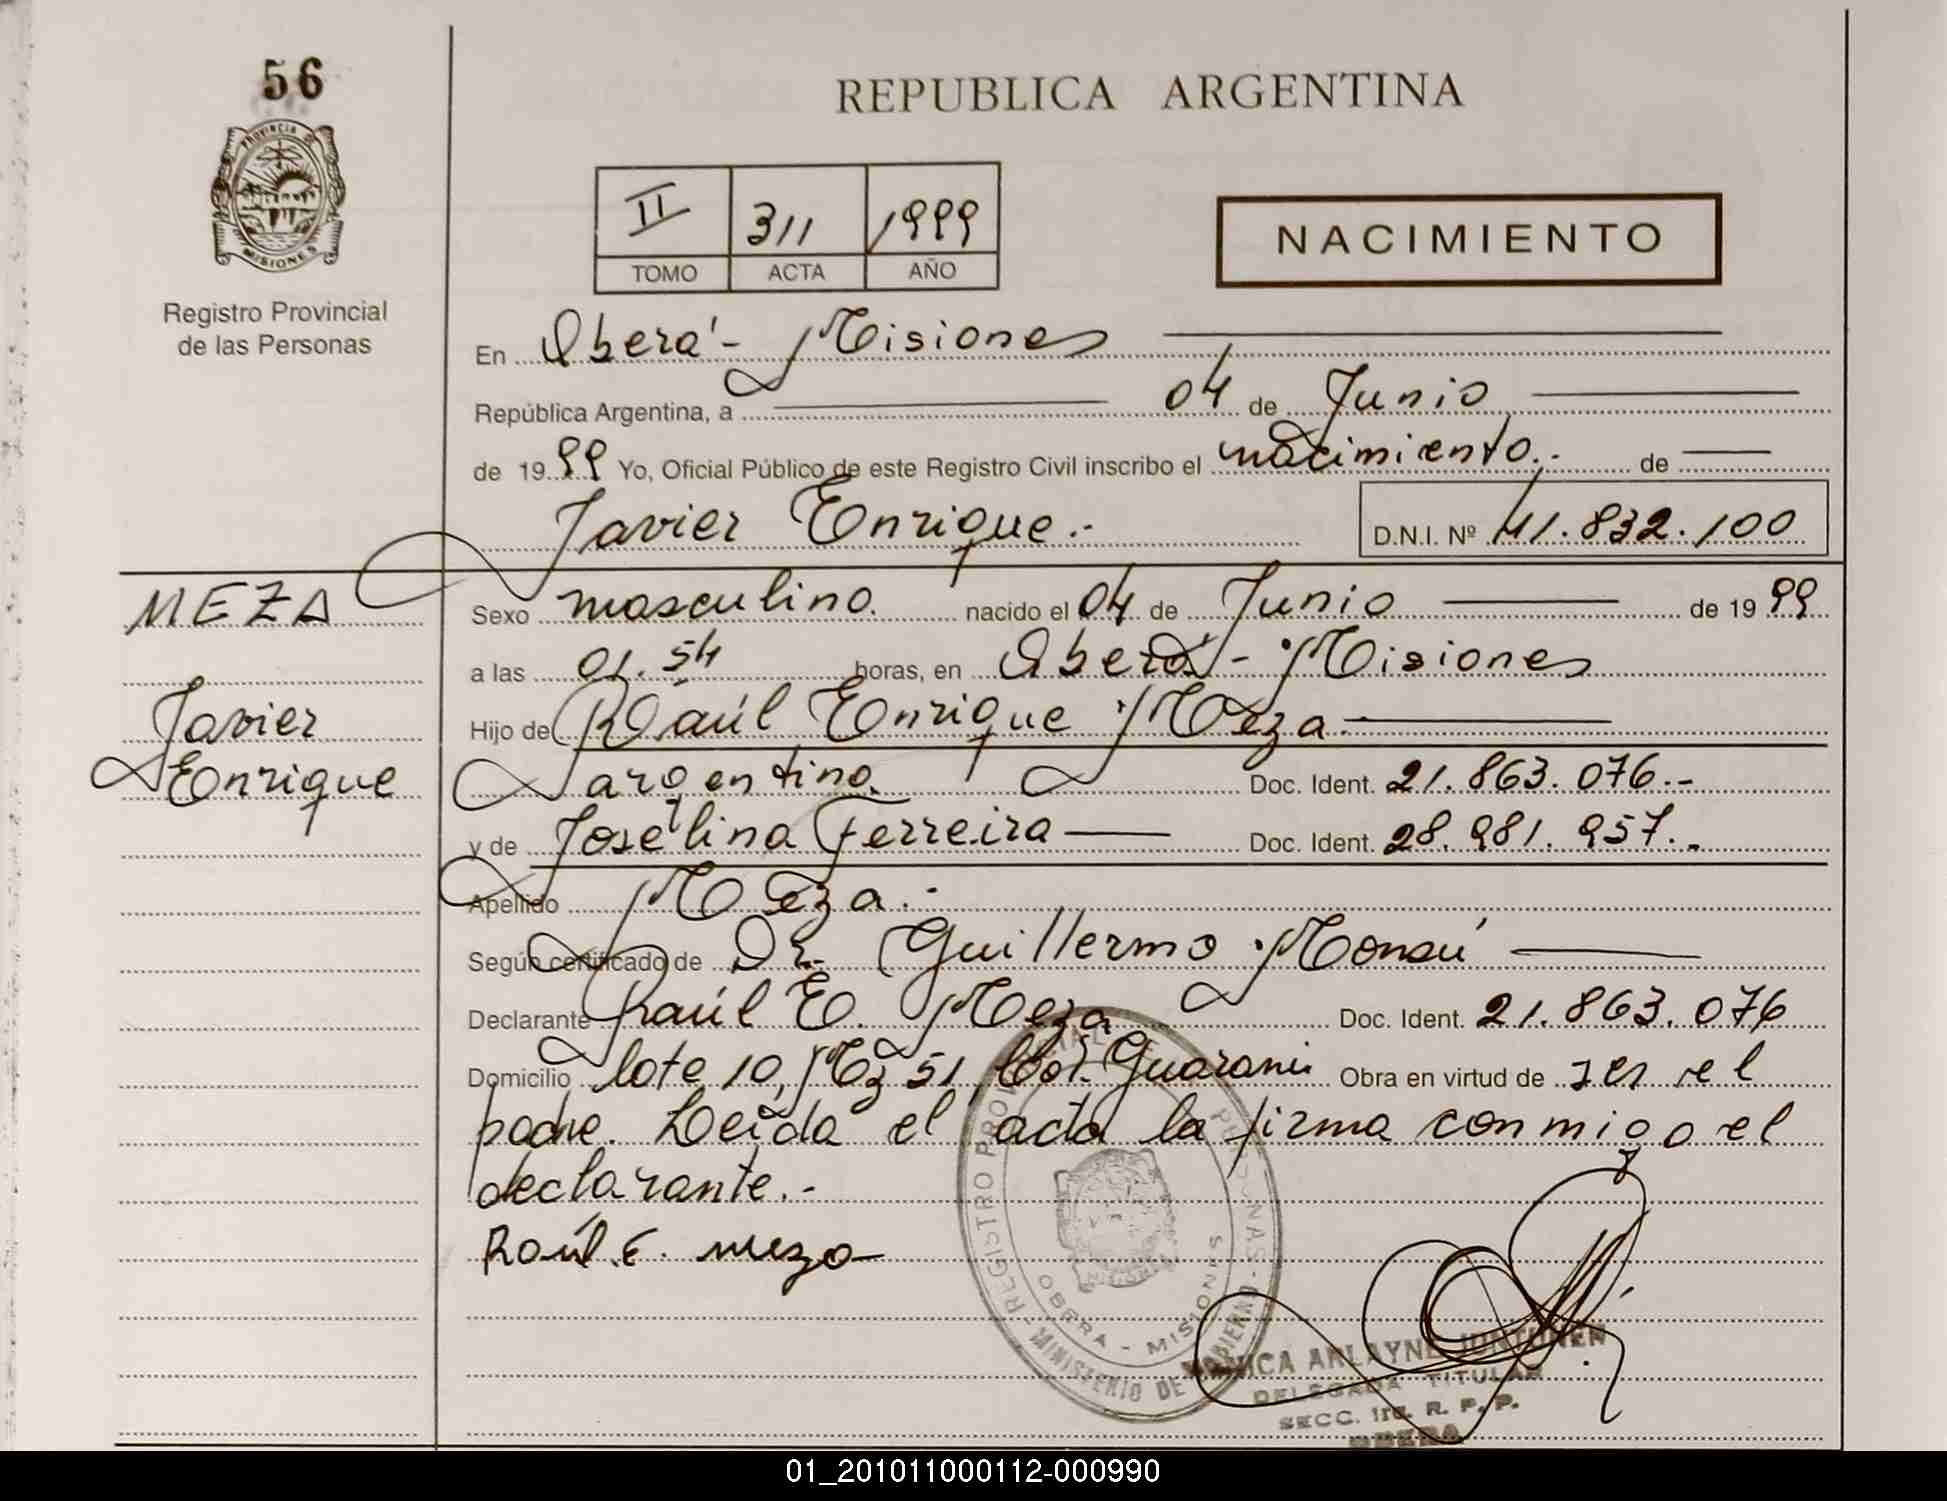 56
REPUBLICA ARGENTINA
PROVINCIA DE
MISIONES
Registro Provincial
de las Personas
II 311 1999
TOMO ACTA AÑO
NACIMIENTO
En Oberá - Misiones
República Argentina, a 04 de Junio
de 1999 Yo, Oficial Público de este Registro Civil inscribo el nacimiento.- de
Javier Enrique.- D.N.I. Nº 41.832.100
MEZA
Sexo masculino. nacido el 04 de Junio de 1999
a las 01.54 horas, en Oberá - Misiones
Javier
Hijo de Raúl Enrique Meza.
Enrique
argentino. Doc. Ident. 21.863.076.-
y de Joselina Ferreira Doc. Ident. 28.981.957..
Apellido Meza.-
Según certificado de Dr. Guillermo
Declarante Raúl E. Meza Doc. Ident. 21.863.076
Domicilio lote 10, Mz 51, Col. Guaraní Obra en virtud de ser el
padre. Leída el acta la firma conmigo el
declarante.-
Raúl E. meza
REGISTRO PROVINCIAL DE PERSONAS - MINISTERIO DE GOBIERNO
OBERA - MISIONES
MISIONES
MONICA ARLAYNE
DELEGADA TITULAR
SECC. 1ra. R. P. P.
OBERA
01_201011000112-000990